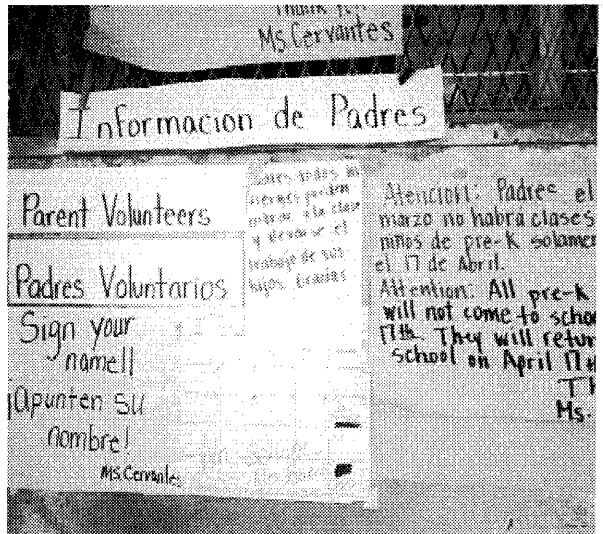 Thank
Ms. Cervantes
Informacion de Padres
Parent Volunteers
Padres Voluntarios
Sign your
name!!
¡Apunten su
nombre!
Ms. Cervantes
Padres todos los
viernes pueden
entrar a la clase
y el
trabajo de sus
hijos. Gracias
Atencion: Padres el
marzo no habra clases
niños de pre-k solamen
el 17 de Abril.
Attention: All pre-k
will not come to scho
17th. They will retur
school on April 17th
Th
Ms.